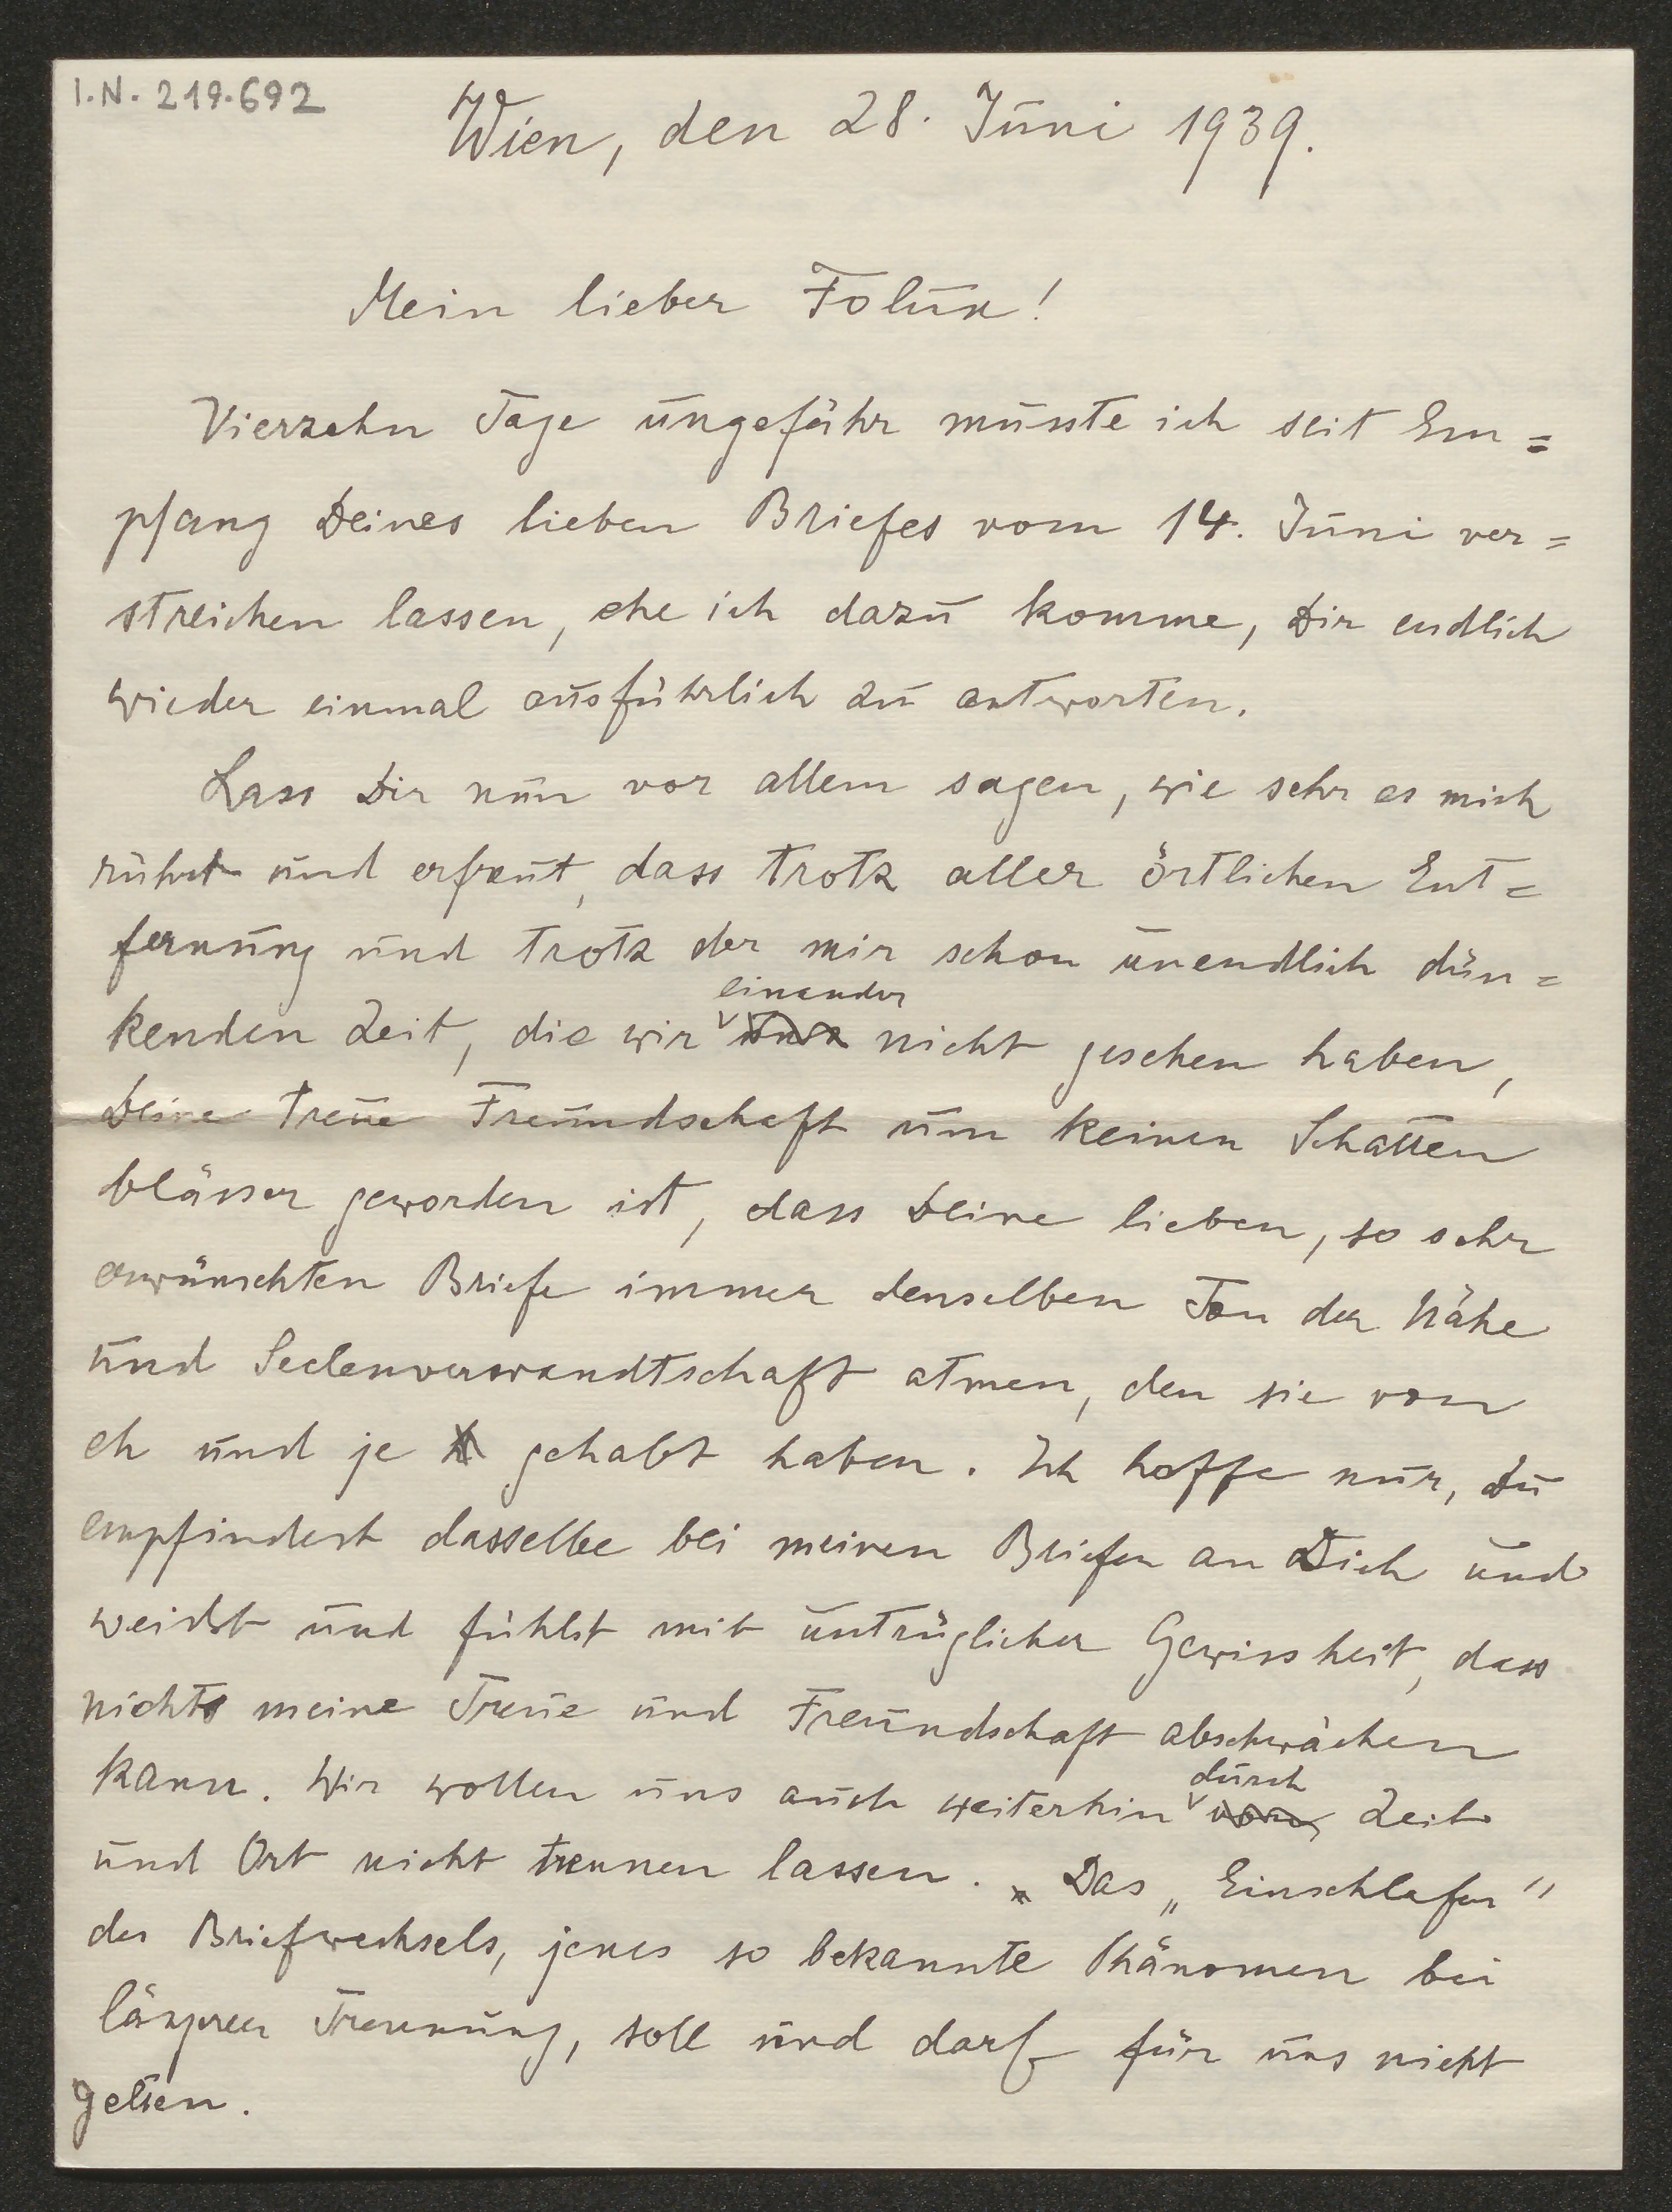 I.N. 219.692
Wien, den 28. Juni 1939.
Mein lieber Foluk!
Vierzehn Tage ungefähr musste ich seit Em=
pfang Deines lieben Briefes vom 14. Juni ver=
streichen lassen, ehe ich dazu komme, Dir endlich
wieder einmal ausführlich zu antworten.
Lass Dir nun vor allem sagen, wie sehr es mich
rührt und erfreut, dass trotz aller örtlichen Ent=
fernung und trotz der mir schon unendlich dün=
einander
kenden Zeit, die wir uns nicht gesehen haben,
Deine treue Freundschaft um keinen Schatten
blässer geworden ist, dass Deine lieben, so sehr
erwünschten Briefe immer denselben Ton der Nähe
und Seelenverwandtschaft atmen, den sie von
eh und je gehabt haben. Ich hoffe nur, Du
empfindest dasselbe bei meinen Briefen an Dich und
weisst und fühlst mit untrüglicher Gewissheit, dass
nichts meine Treue und Freundschaft abschwächen
durch
kann. Wir wollen uns auch weiterhin von Zeit
und Ort nicht trennen lassen. Das „Einschlafen"
des Briefwechsels, jenes so bekannte Phänomen bei
längerer Trennung, soll und darf für uns nicht
gelten.